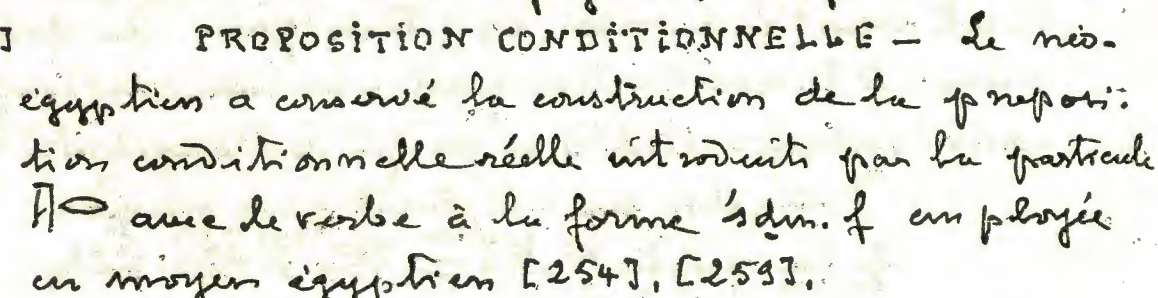 ] PROPOSITION CONDITIONNELLE — Le néo-
égyptien a conservé la construction de la proposi-
tion conditionnelle réelle introduite par la particule
𓇋𓂋 avec le verbe à la forme sḏm.f employée
en moyen égyptien [254], [259].